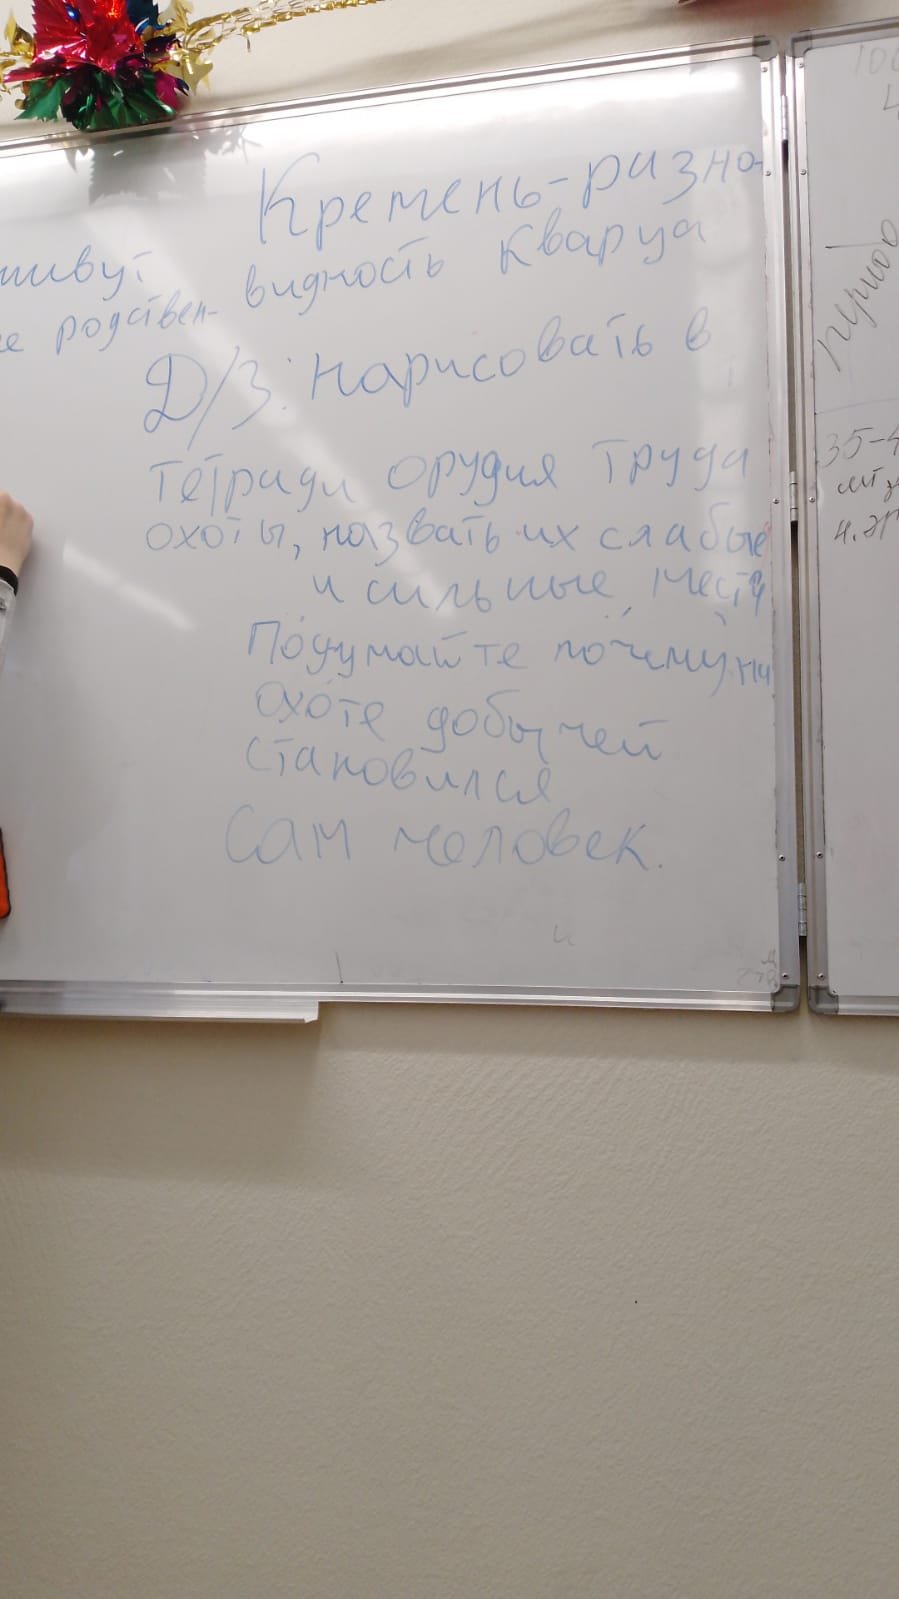 Кремень-разно-
живут видность кварца
родствен-
Д/З: нарисовать в
тетради орудия труда
охоты, назвать их слабые
и сильные места
Подумайте почему на
охоте добычей
становился
Сам человек.
100
период
35-4
4.